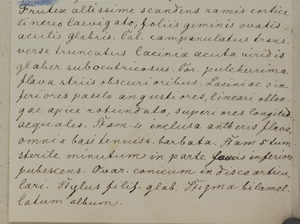 Frutex altissime scandens ramis cortice
cinereo laevigato, foliis geminis ovatis
acutis glabris. Cal. campanulatus trans-
verse truncatus lacinia acuta viridis
glaber subocutricosus. Cor. pulcherima
flava striis obscurioribus. Laciniae 3 in-
feriores paulo angustiores, lineari oblon-
gae apice rotundata, superiores longitud
aequales. Stam. 4 inclusa antheris flava,
omnia basi tenuiss. barbata. Stam 5tum
sterile minutum in parte inferiore
pubescens. Ovar. conicum in disco artícu-
lari. Stylus filif. glab. Stigma bilamel-
latum album.